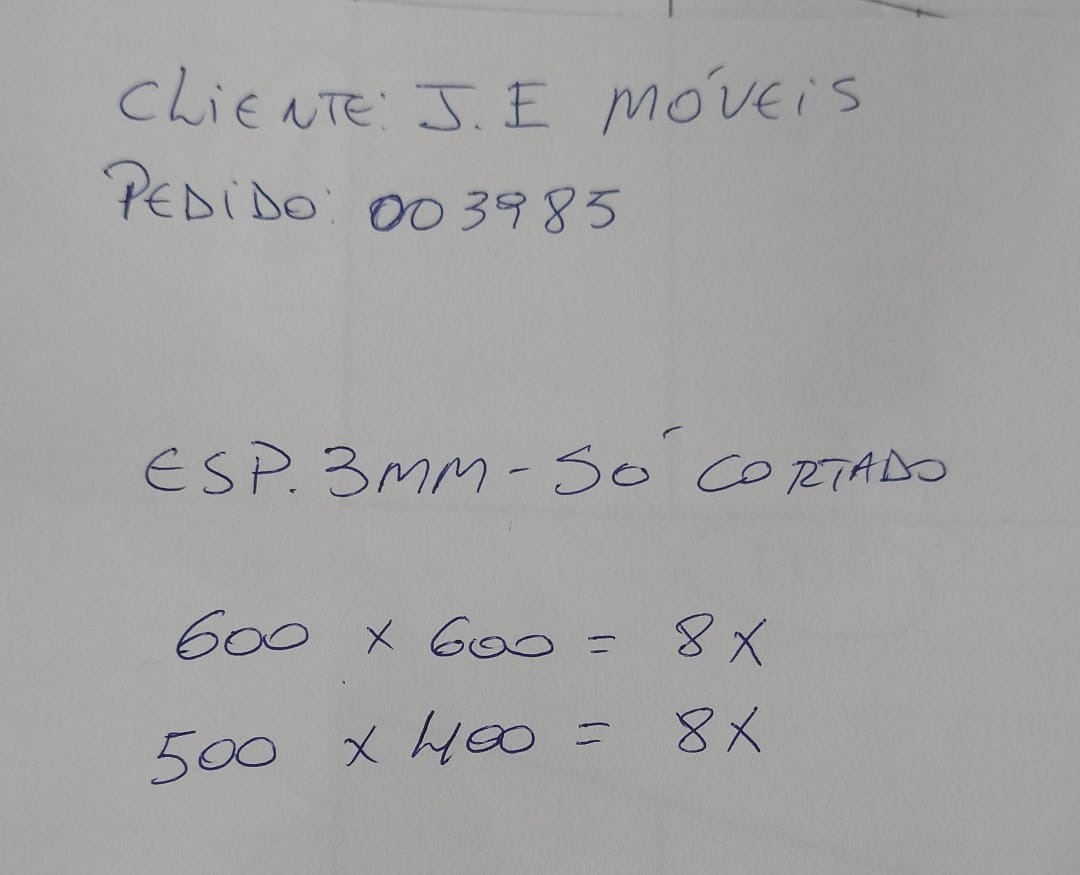 CLIENTE: J.E MÓVEIS
PEDIDO: 003985
ESP. 3MM - SÓ CORTADO
600 x 600 = 8X
500 x 400 = 8X